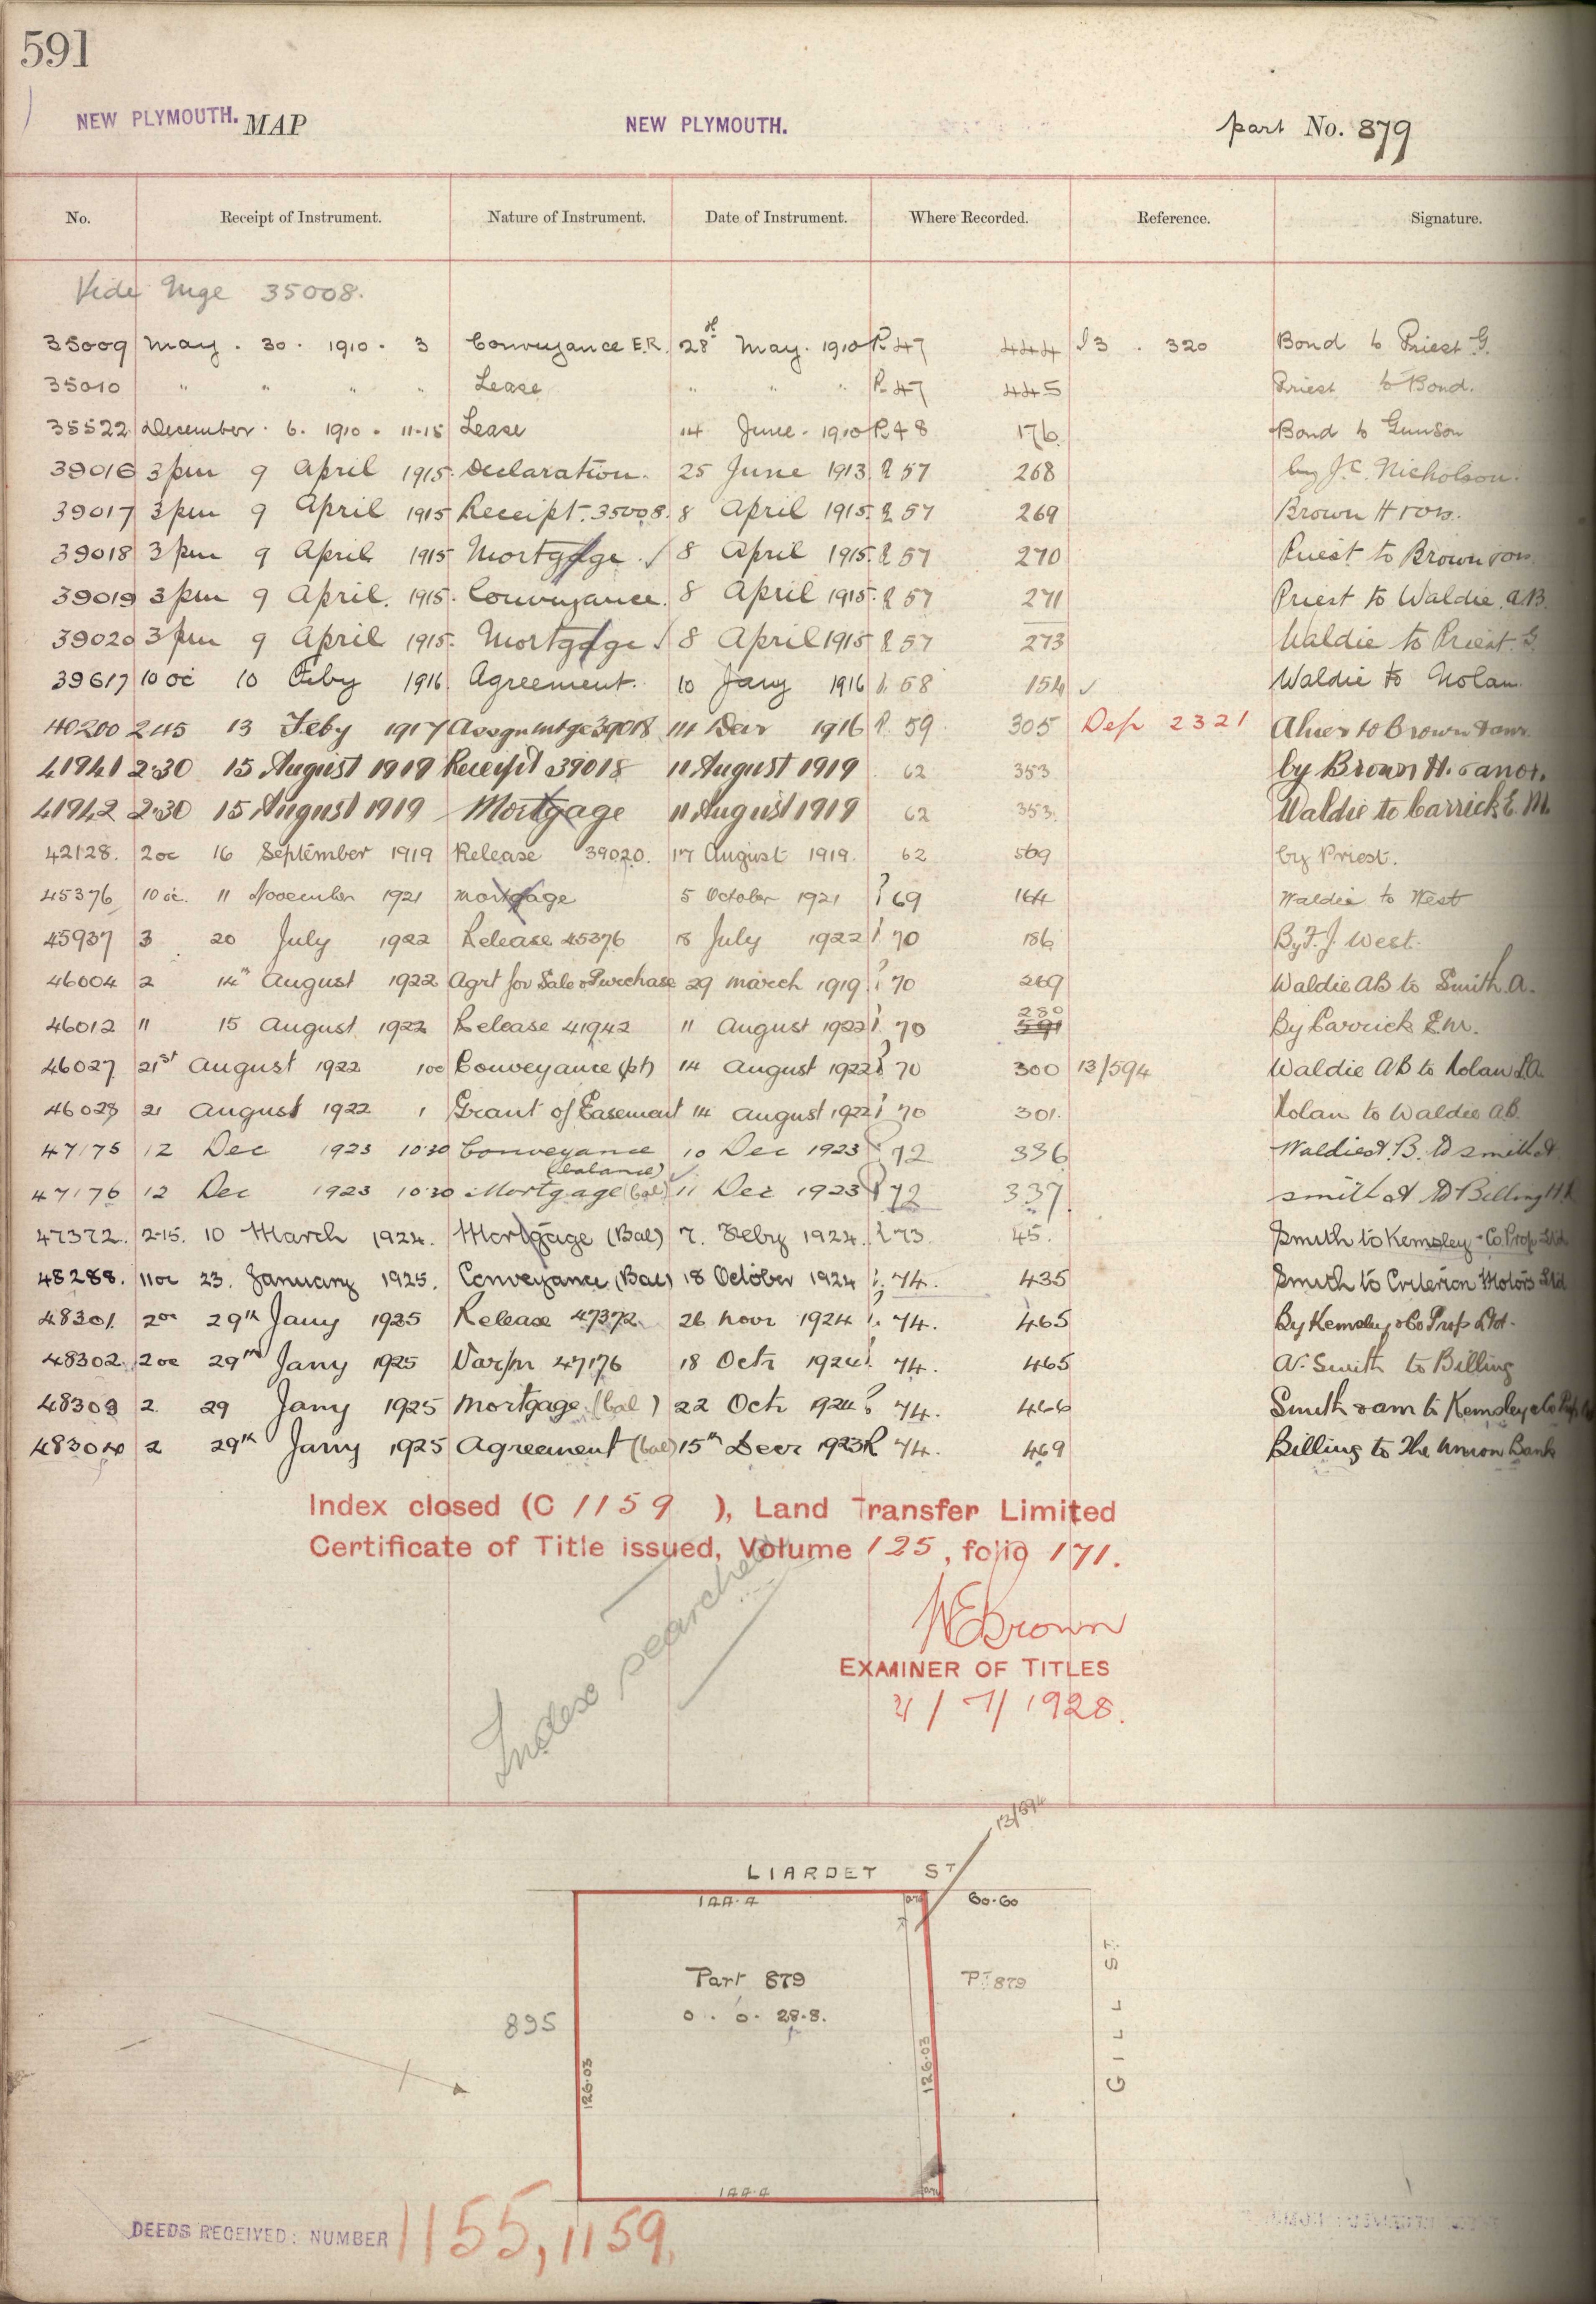 591
NEW PLYMOUTH. MAP NEW PLYMOUTH. part No. 879
No. Receipt of Instrument. Nature of Instrument. Date of Instrument. Where Recorded. Reference. Signature.
Vide Mge 35008.
35009 May . 30 . 1910 . 3 Conveyance E.R. 28 May . 1910 R 47 444 I3 . 320 Bond to Priest G.
35010 " " " " Lease " " " R 47 445 Priest to Bond.
35522 December . 6 . 1910 . 11-15 Lease 14 June . 1910 R 48 176 Bond to Gunson
39016 3pm 9 April 1915 Declaration. 25 June 1913 R 57 268 by J.C. Nicholson.
39017 3pm 9 April 1915 Receipt. 35008. 8 April 1915. R 57 269 Brown H
39018 3pm 9 April 1915 Mortgage. 8 April 1915. R 57 270 Priest to Brown
39019 3pm 9 April. 1915. Conveyance. 8 April 1915. R 57 271 Priest to Waldie. A.B.
39020 3pm 9 April 1915. Mortgage 8 April 1915 R 57 273 Waldie to Priest. G.
39617 10 oc 10 Feby 1916. Agreement. 10 Jany 1916 R. 58 154 ✓ Waldie to Nolan.
40200 2.45 13 Feby 1917 Assgn mtge 39018 1916 R. 59 305 Dep 2321 to Brown & anr.
41941 2.30 15 August 1919 Receipt 39018 11 August 1919 62 353 by Brown H. & anor.
41942 2.30 15 August 1919 Mortgage 11 August 1919 62 353. Waldie to Carrick E. M.
42128. 2 oc 16 September 1919 Release 39020. 17 August 1919. 62 569 by Priest.
45376 10 oc. 11 November 1921 Mortgage 5 October 1921 R 69 164 Waldie to West
45937 3 20 July 1922 Release 45376 18 July 1922 R 70 186 By F. J. West.
46004 2 14th August 1922 Agrt for Sale & Purchase 29 March 1919 R 70 269 Waldie AB to Smith. A.
46012 11 15 August 1922 Release 41942 11 August 1922 R 70 280 591 By Carrick E.M.
46027 21st August 1922 1 oc Conveyance (pt) 14 August 1922 R 70 300 13/594 Waldie AB to Nolan L.A.
46028 21 August 1922 1 Grant of Easement 14 August 1922 R 70 301. Nolan to Waldie A.B.
47175 12 Dec 1923 10.30 Conveyance (balance) 10 Dec 1923 R 72 336 Waldie A. B. to Smith A
47176 12 Dec 1923 10.30 Mortgage (bal) 11 Dec 1923 R 72 337. Smith A to Billing H.
47372. 2-15. 10 March 1924. Mortgage (Bal) 7. Feby 1924. R 73. 45. Smith to Kemsley & Co. Prop. Ltd
48288. 11 oc 23. January 1925. Conveyance (Bal) 18 October 1924 R. 74. 435 Smith to Criterion Motors Ltd
48301. 2 oc 29th Jany 1925 Release 47372. 26 Novr 1924 R. 74. 465 By Kemsley & Co Prop Ltd.
48302. 2 oc 29th Jany 1925 Var/n 47176 18 Octr 1924 R. 74. 465 A. Smith to Billing
48303 2. 29 Jany 1925 Mortgage (bal) 22 Octr 1924 R 74. 466 Smith & anr to Kemsley & Co Prop
48304 2 29th Jany 1925 Agreement (bal) 15th Decr 1923 R 74. 469 Billing to The Union Bank
Index closed (C 1159 ), Land Transfer Limited
Certificate of Title issued, Volume 125, folio 171.
Index searched
W E Brown
EXAMINER OF TITLES
/ 7 / 1928.
13/594
LIARDET ST
144.4 60.60
Part 879
0 . 0 . 28.8.
Pt 879
895
126.03
126.03
GILL ST
144.4
DEEDS RECEIVED: NUMBER 1155, 1159.